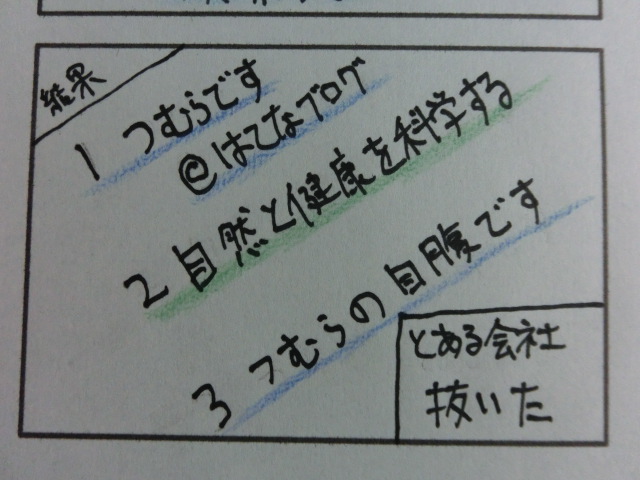 結果
1 つむらです
@はてなブログ
2 自然と健康を科学する
3 つむらの自腹です
とある会社
抜いた